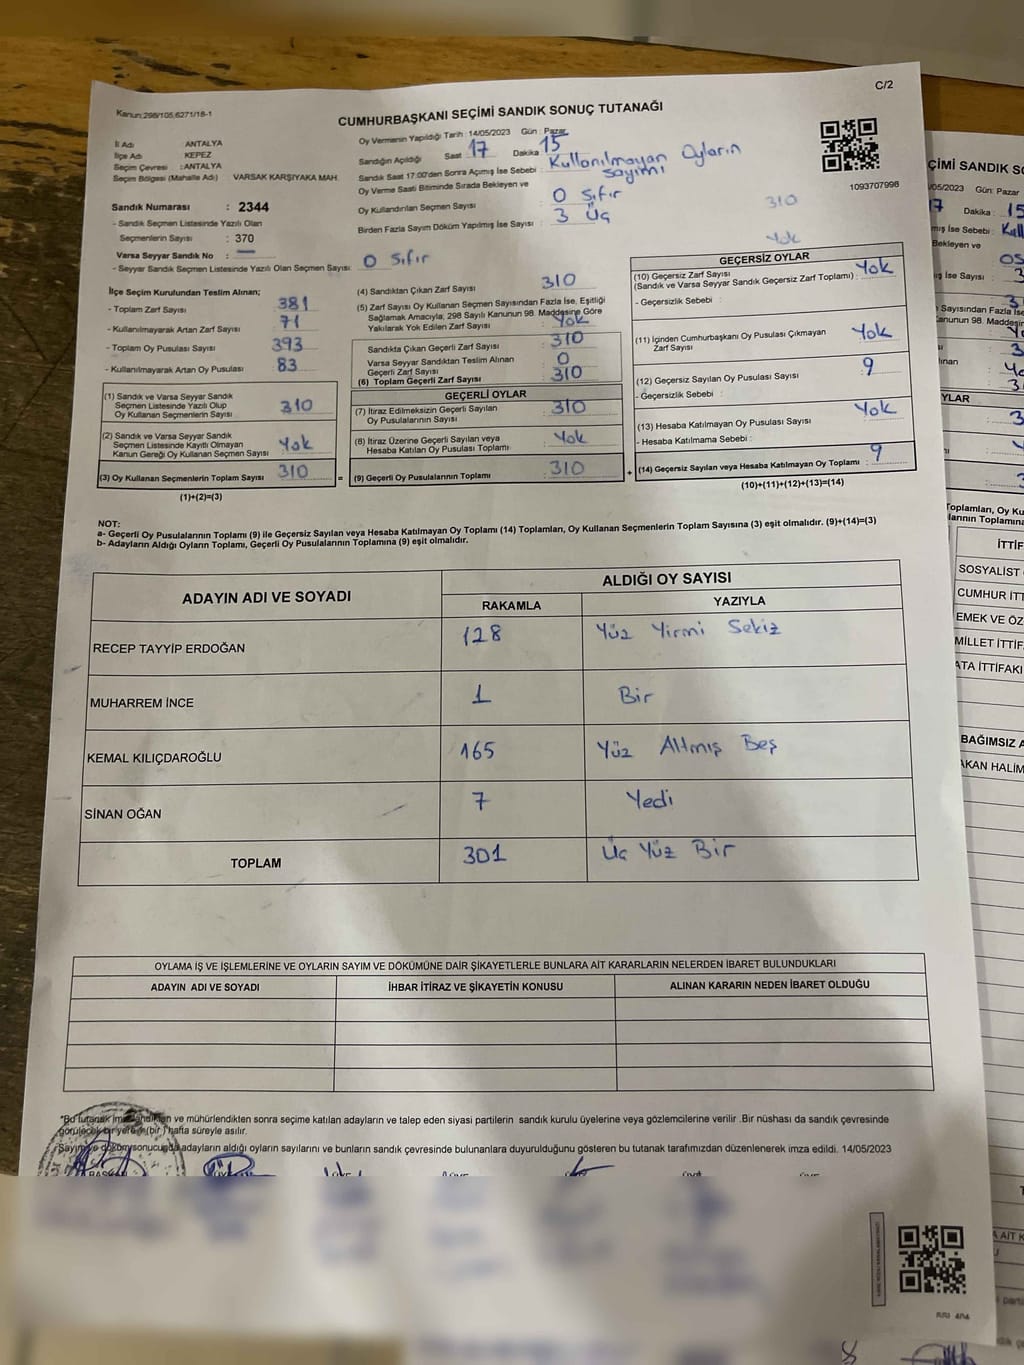 C/2
Kanun:298/105,6271/18-1
CUMHURBAŞKANI SEÇİMİ SANDIK SONUÇ TUTANAĞI
İl Adı ANTALYA
İlçe Adı KEPEZ
Seçim Çevresi : ANTALYA
Seçim Bölgesi (Mahalle Adı) VARSAK KARŞIYAKA MAH.
Sandık Numarası : 2344
- Sandık Seçmen Listesinde Yazılı Olan
Seçmenlerin Sayısı : 370
Varsa Seyyar Sandık No :
- Seyyar Sandık Seçmen Listesinde Yazılı Olan Seçmen Sayısı 0 Sıfır
Oy Vermenin Yapıldığı Tarih : 14/05/2023 Gün : Pazar
Sandığın Açıldığı Saat 17 Dakika 15
Sandık Saat 17:00'den Sonra Açımış İse Sebebi : Kullanılmayan Oyların Sayımı
Oy Verme Saati Bitiminde Sırada Bekleyen ve
Oy Kullandırılan Seçmen Sayısı : 0 Sıfır
Birden Fazla Sayım Döküm Yapılmış İse Sayısı : 3 Üç
1093707998
310
Yok
İlçe Seçim Kurulundan Teslim Alınan;
- Toplam Zarf Sayısı 381
- Kullanılmayarak Artan Zarf Sayısı 71
- Toplam Oy Pusulası Sayısı 393
- Kullanılmayarak Artan Oy Pusulası 83
(1) Sandık ve Varsa Seyyar Sandık
Seçmen Listesinde Yazılı Olup
Oy Kullanan Seçmenlerin Sayısı 310
(2) Sandık ve Varsa Seyyar Sandık
Seçmen Listesinde Kayıtlı Olmayan
Kanun Gereği Oy Kullanan Seçmen Sayısı Yok
(3) Oy Kullanan Seçmenlerin Toplam Sayısı 310
(1)+(2)=(3)
(4) Sandıktan Çıkan Zarf Sayısı 310
(5) Zarf Sayısı Oy Kullanan Seçmen Sayısından Fazla İse, Eşitliği
Sağlamak Amacıyla, 298 Sayılı Kanunun 98. Maddesine Göre
Yakılarak Yok Edilen Zarf Sayısı Yok
Sandıkta Çıkan Geçerli Zarf Sayısı 310
Varsa Seyyar Sandıktan Teslim Alınan
Geçerli Zarf Sayısı 0
(6) Toplam Geçerli Zarf Sayısı 310
GEÇERLİ OYLAR
(7) İtiraz Edilmeksizin Geçerli Sayılan
Oy Pusulalarının Sayısı : 310
(8) İtiraz Üzerine Geçerli Sayılan veya
Hesaba Katılan Oy Pusulası Toplamı : Yok
= (9) Geçerli Oy Pusulalarının Toplamı : 310 +
GEÇERSİZ OYLAR
(10) Geçersiz Zarf Sayısı
(Sandık ve Varsa Seyyar Sandık Geçersiz Zarf Toplamı) : Yok
- Geçersizlik Sebebi :
(11) İçinden Cumhurbaşkanı Oy Pusulası Çıkmayan
Zarf Sayısı Yok
(12) Geçersiz Sayılan Oy Pusulası Sayısı : 9
- Geçersizlik Sebebi :
(13) Hesaba Katılmayan Oy Pusulası Sayısı : Yok
- Hesaba Katılmama Sebebi :
(14) Geçersiz Sayılan veya Hesaba Katılmayan Oy Toplamı : 9
(10)+(11)+(12)+(13)=(14)
NOT:
a- Geçerli Oy Pusulalarının Toplamı (9) ile Geçersiz Sayılan veya Hesaba Katılmayan Oy Toplamı (14) Toplamları, Oy Kullanan Seçmenlerin Toplam Sayısına (3) eşit olmalıdır. (9)+(14)=(3)
b- Adayların Aldığı Oyların Toplamı, Geçerli Oy Pusulalarının Toplamına (9) eşit olmalıdır.
ADAYIN ADI VE SOYADI ALDIĞI OY SAYISI
RAKAMLA YAZIYLA
RECEP TAYYİP ERDOĞAN 128 Yüz Yirmi Sekiz
MUHARREM İNCE 1 Bir
KEMAL KILIÇDAROĞLU 165 Yüz Altmış Beş
SİNAN OĞAN 7 Yedi
TOPLAM 301 Üç Yüz Bir
OYLAMA İŞ VE İŞLEMLERİNE VE OYLARIN SAYIM VE DÖKÜMÜNE DAİR ŞİKAYETLERLE BUNLARA AİT KARARLARIN NELERDEN İBARET BULUNDUKLARI
ADAYIN ADI VE SOYADI İHBAR İTİRAZ VE ŞİKAYETİN KONUSU ALINAN KARARIN NEDEN İBARET OLDUĞU
*Bu tutanak imzalandıktan ve mühürlendikten sonra seçime katılan adayların ve talep eden siyasi partilerin sandık kurulu üyelerine veya gözlemcilerine verilir .Bir nüshası da sandık çevresinde
görülecek bir yere 1 (bir) hafta süreyle asılır.
Sayım ve döküm sonucunda adayların aldığı oyların sayılarını ve bunların sandık çevresinde bulunanlara duyurulduğunu gösteren bu tutanak tarafımızdan düzenlenerek imza edildi. 14/05/2023
BAŞKAN
ÇİMİ SANDIK S
/05/2023 Gün: Pazar
Dakika : 15
mış İse Sebebi :
Bekleyen ve
İse Sayısı
YLAR
İTTİF
SOSYALİST
CUMHUR İTT
EMEK VE ÖZ
MİLLET İTTİF
ATA İTTİFAKI
BAĞIMSIZ A
AKAN HALİM